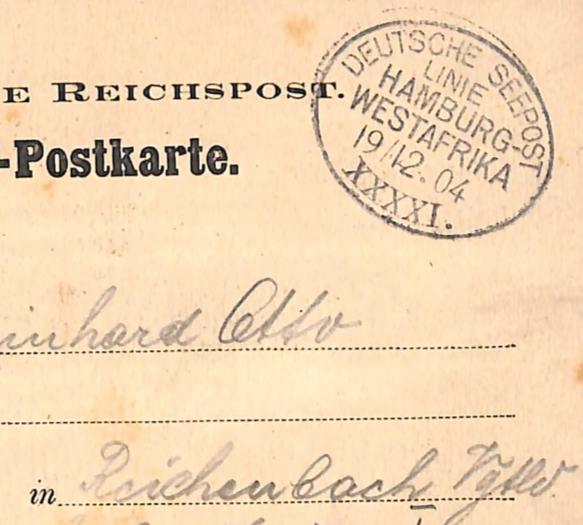 E REICHSPOST.
-Postkarte.
DEUTSCHE SEEPOST
LINIE
HAMBURG-
WESTAFRIKA
19/12.04
XXXXI.
inhard Otto
in Reichenbach Vgtld.